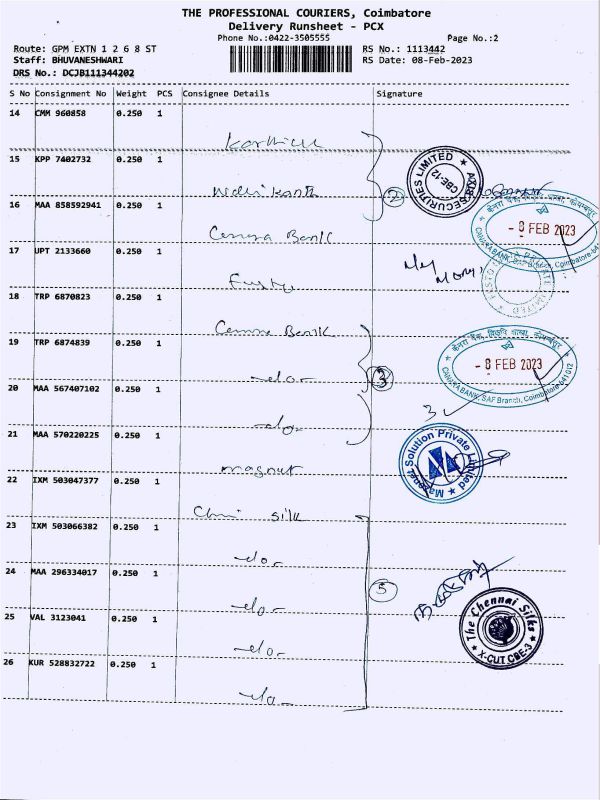 THE PROFESSIONAL COURIERS, Coimbatore
Delivery Runsheet - PCX
Phone No.:0422-3505555
Page No.:2
Route: GPM EXTN 1 2 6 8 ST
RS No.: 1113442
Staff: BHUVANESHWARI
RS Date: 08-Feb-2023
DRS No.: DCJB111344202
S No Consignment No Weight PCS Consignee Details Signature
14 CMM 960858 0.250 1
15 KPP 7402732 0.250 1
SECURITIES LIMITED ★ CBE-12
2
16 MAA 858592941 0.250 1
Canara Bank
केनरा बैंक
- 8 FEB 2023
CANARA BANK, SAF Branch, Coimbatore-641
17 UPT 2133660 0.250 1
FESTO PRIVATE LIMITED
18 TRP 6870823 0.250 1
Canara Bank
केनरा बैंक
- 8 FEB 2023
CANARA BANK, SAF Branch, Coimbatore-641 012
19 TRP 6874839 0.250 1
-do-
3
20 MAA 567407102 0.250 1
-do-
3
21 MAA 570220225 0.250 1
magnut
Solution Private Limited
22 IXM 503047377 0.250 1
silk
23 IXM 503066382 0.250 1
-do-
24 MAA 296334017 0.250 1
-do-
5
25 VAL 3123041 0.250 1
-do-
The Chennai Silks
★ X-CUT CBE-3 ★
26 KUR 528832722 0.250 1
-do-